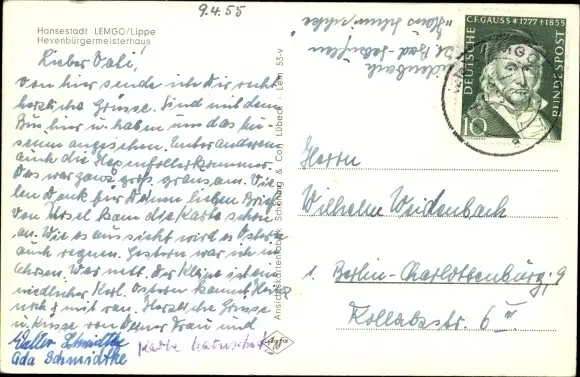 9.4.55
Hansestadt LEMGO/Lippe
Hexenbürgermeisterhaus
Lieber Vati!
Von hier sende ich Dir recht
herzliche Grüsse. Sind mit dem
Bus hier u. haben uns das Mu-
seum angesehen. Unter anderem
auch die Hexenfolterkammer.
Das war ganz grausam. Vie-
len Dank für Deinen lieben Brief.
Von Ursel kam die Karte schon
an. Wie es aussieht wird es Ostern
auch regnen. Gestern war ich in
War nett. Der Kleine ist ein
niedlicher Kerl. Ostern kommt
noch mit ran. Herzliche Grüsse
u. Küsse von Deiner Frau und
Walter Schmidtke
Ada Schmidtke
Karte
Ansichtskartenfabrik Schöning & Co., Lübeck
Lem 53-v
Agfa
Weidenbach
Bad Salzuflen
"Haus Schmidtke"
C.F. GAUSS * 1777 † 1855
DEUTSCHE BUNDESPOST
10
LEMGO
Herrn
Wilhelm Weidenbach
1. Berlin-Charlottenburg 9
Kollatzstr. 6 III